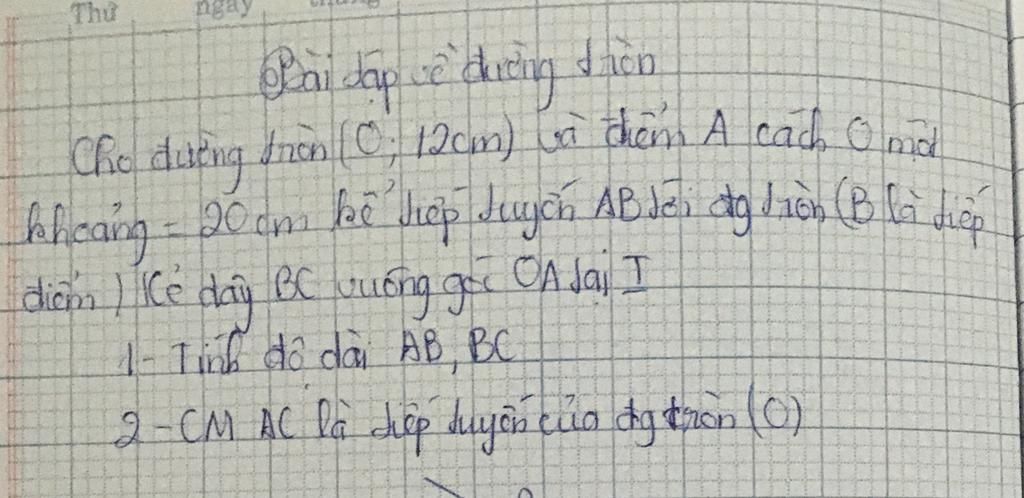 Thứ ngày tháng
Bài tập về đường tròn
Cho đường tròn (O; 12cm) và điểm A cách O một
khoảng = 20 cm kẻ tiếp tuyến AB tới đg tròn (B là tiếp
điểm) Kẻ dây BC vuông góc OA tại I
1- Tính độ dài AB, BC
2- CM AC là tiếp tuyến của đg tròn (O)